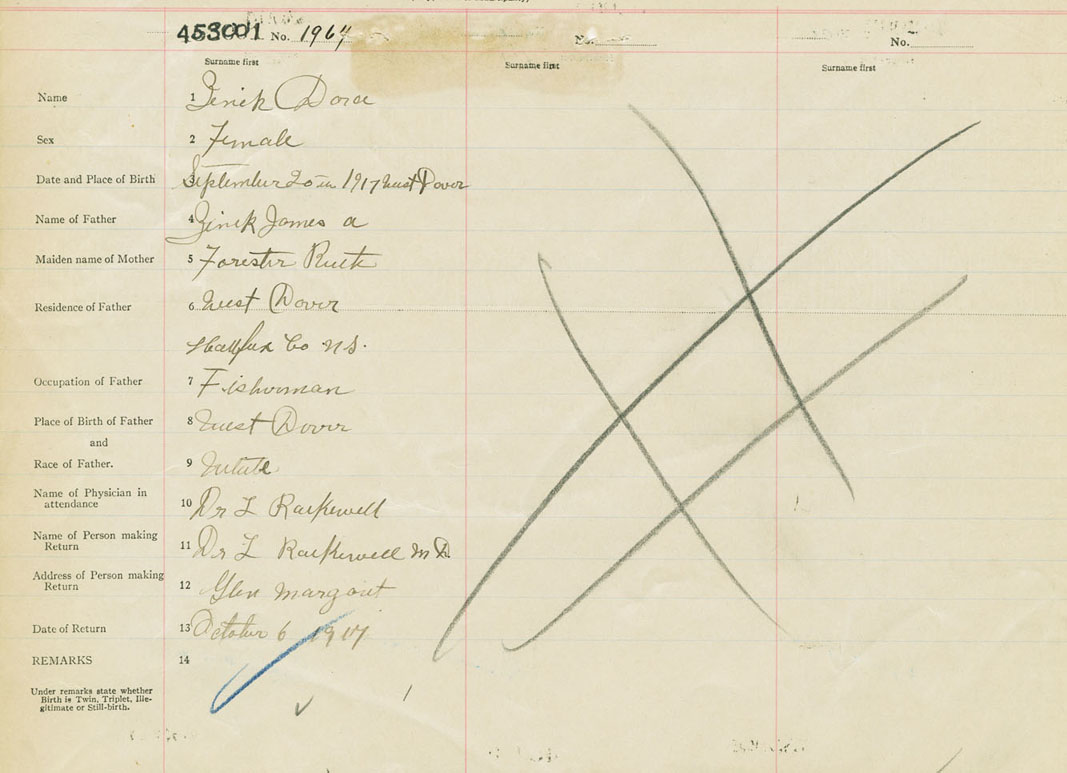 453001 No. 1964 No. No.
Surname first Surname first Surname first
Name 1 Zinck Dora
Sex 2 Female
Date and Place of Birth 3 September 20 1917 West Dover
Name of Father 4 Zinck James A
Maiden name of Mother 5 Forester Ruth
Residence of Father 6 West Dover
Halifax Co N.S.
Occupation of Father 7 Fisherman
Place of Birth of Father 8 West Dover
and
Race of Father. 9 White
Name of Physician in
attendance 10 Dr L
Name of Person making
Return 11 Dr L M D.
Address of Person making
Return 12 Glen Margaret
Date of Return 13 October 6 1917
REMARKS 14
Under remarks state whether
Birth is Twin, Triplet, Ille-
gitimate or Still-birth.